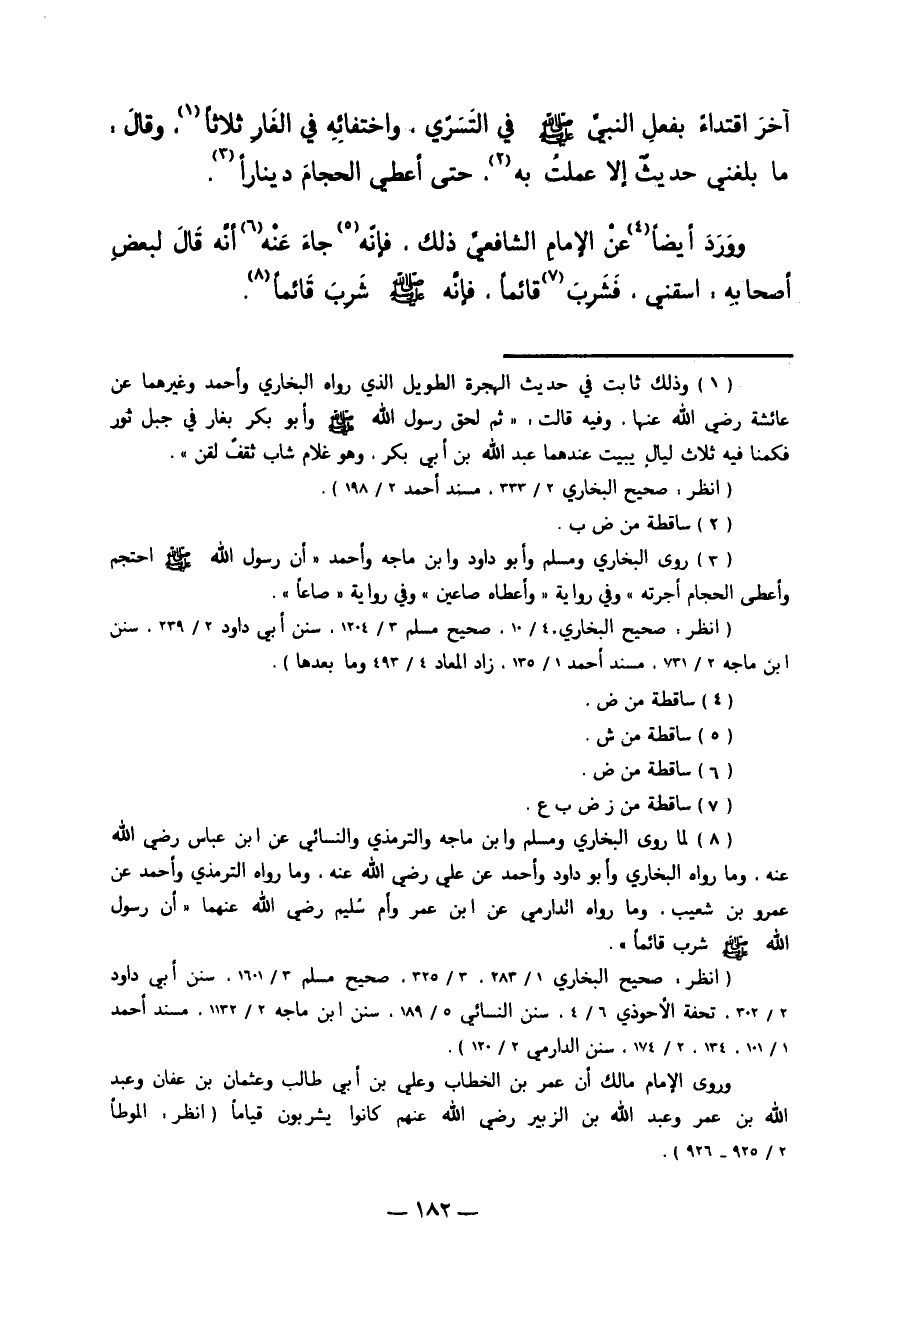 آخرَ اقتداءً بفعلِ النبيِّ ﷺ في التَسَرّي ، واختفائِهِ في الغَارِ ثلاثاً(١) ، وقالَ :
ما بلغني حديثٌ إلا عملتُ به(٢) ، حتى أعطي الحجامَ ديناراً(٣) .
ووَرَدَ أيضاً(٤) عنْ الإمامِ الشافعيِّ ذلك ، فإنّه(٥) جاءَ عَنْه(٦) أنَّه قَالَ لبعضِ
أصحابِهِ : اسقني ، فَشَرِبَ(٧) قائماً ، فإنَّه ﷺ شَرِبَ قَائماً(٨) .
( ١ ) وذلك ثابت في حديث الهجرة الطويل الذي رواه البخاري وأحمد وغيرهما عن
عائشة رضي الله عنها ، وفيه قالت : « ثم لحق رسول الله ﷺ وأبو بكر بغار في جبل ثور
فكمنا فيه ثلاث ليالٍ يبيت عندهما عبد الله بن أبي بكر ، وهو غلام شاب ثقفٌ لقن » .
( انظر : صحيح البخاري ٢ / ٣٣٣ ، مسند أحمد ٢ / ١٩٨ ) .
( ٢ ) ساقطة من ض ب .
( ٣ ) روى البخاري ومسلم وأبو داود وابن ماجه وأحمد « أن رسول الله ﷺ احتجم
وأعطى الحجام أجرته » وفي رواية « وأعطاه صاعين » وفي رواية « صاعاً » .
( انظر : صحيح البخاري ٤ / ١٠ ، صحيح مسلم ٣ / ١٢٠٤ ، سنن أبي داود ٢ / ٢٣٩ ، سنن
ابن ماجه ٢ / ٧٣١ ، مسند أحمد ١ / ١٣٥ ، زاد المعاد ٤ / ٤٩٣ وما بعدها ) .
( ٤ ) ساقطة من ض .
( ٥ ) ساقطة من ش .
( ٦ ) ساقطة من ض .
( ٧ ) ساقطة من ز ض ب ع .
( ٨ ) لما روى البخاري ومسلم وابن ماجه والترمذي والنسائي عن ابن عباس رضي الله
عنه ، وما رواه البخاري وأبو داود وأحمد عن علي رضي الله عنه ، وما رواه الترمذي وأحمد عن
عمرو بن شعيب ، وما رواه الدارمي عن ابن عمر وأم سُليم رضي الله عنهما « أن رسول
الله ﷺ شرب قائماً » .
( انظر : صحيح البخاري ١ / ٢٨٣ ، ٣ / ٣٢٥ ، صحيح مسلم ٣ / ١٦٠١ ، سنن أبي داود
٢ / ٣٠٢ ، تحفة الأحوذي ٦ / ٤ ، سنن النسائي ٥ / ١٨٩ ، سنن ابن ماجه ٢ / ١١٣٢ ، مسند أحمد
١ / ١٠١ ، ١٣٤ ، ٢ / ١٧٤ ، سنن الدارمي ٢ / ١٢٠ ) .
وروى الإمام مالك أن عمر بن الخطاب وعلي بن أبي طالب وعثمان بن عفان وعبد
الله بن عمر وعبد الله بن الزبير رضي الله عنهم كانوا يشربون قياماً ( انظر : الموطأ
٢ / ٩٢٥ ـ ٩٢٦ ) .
— ١٨٢ —